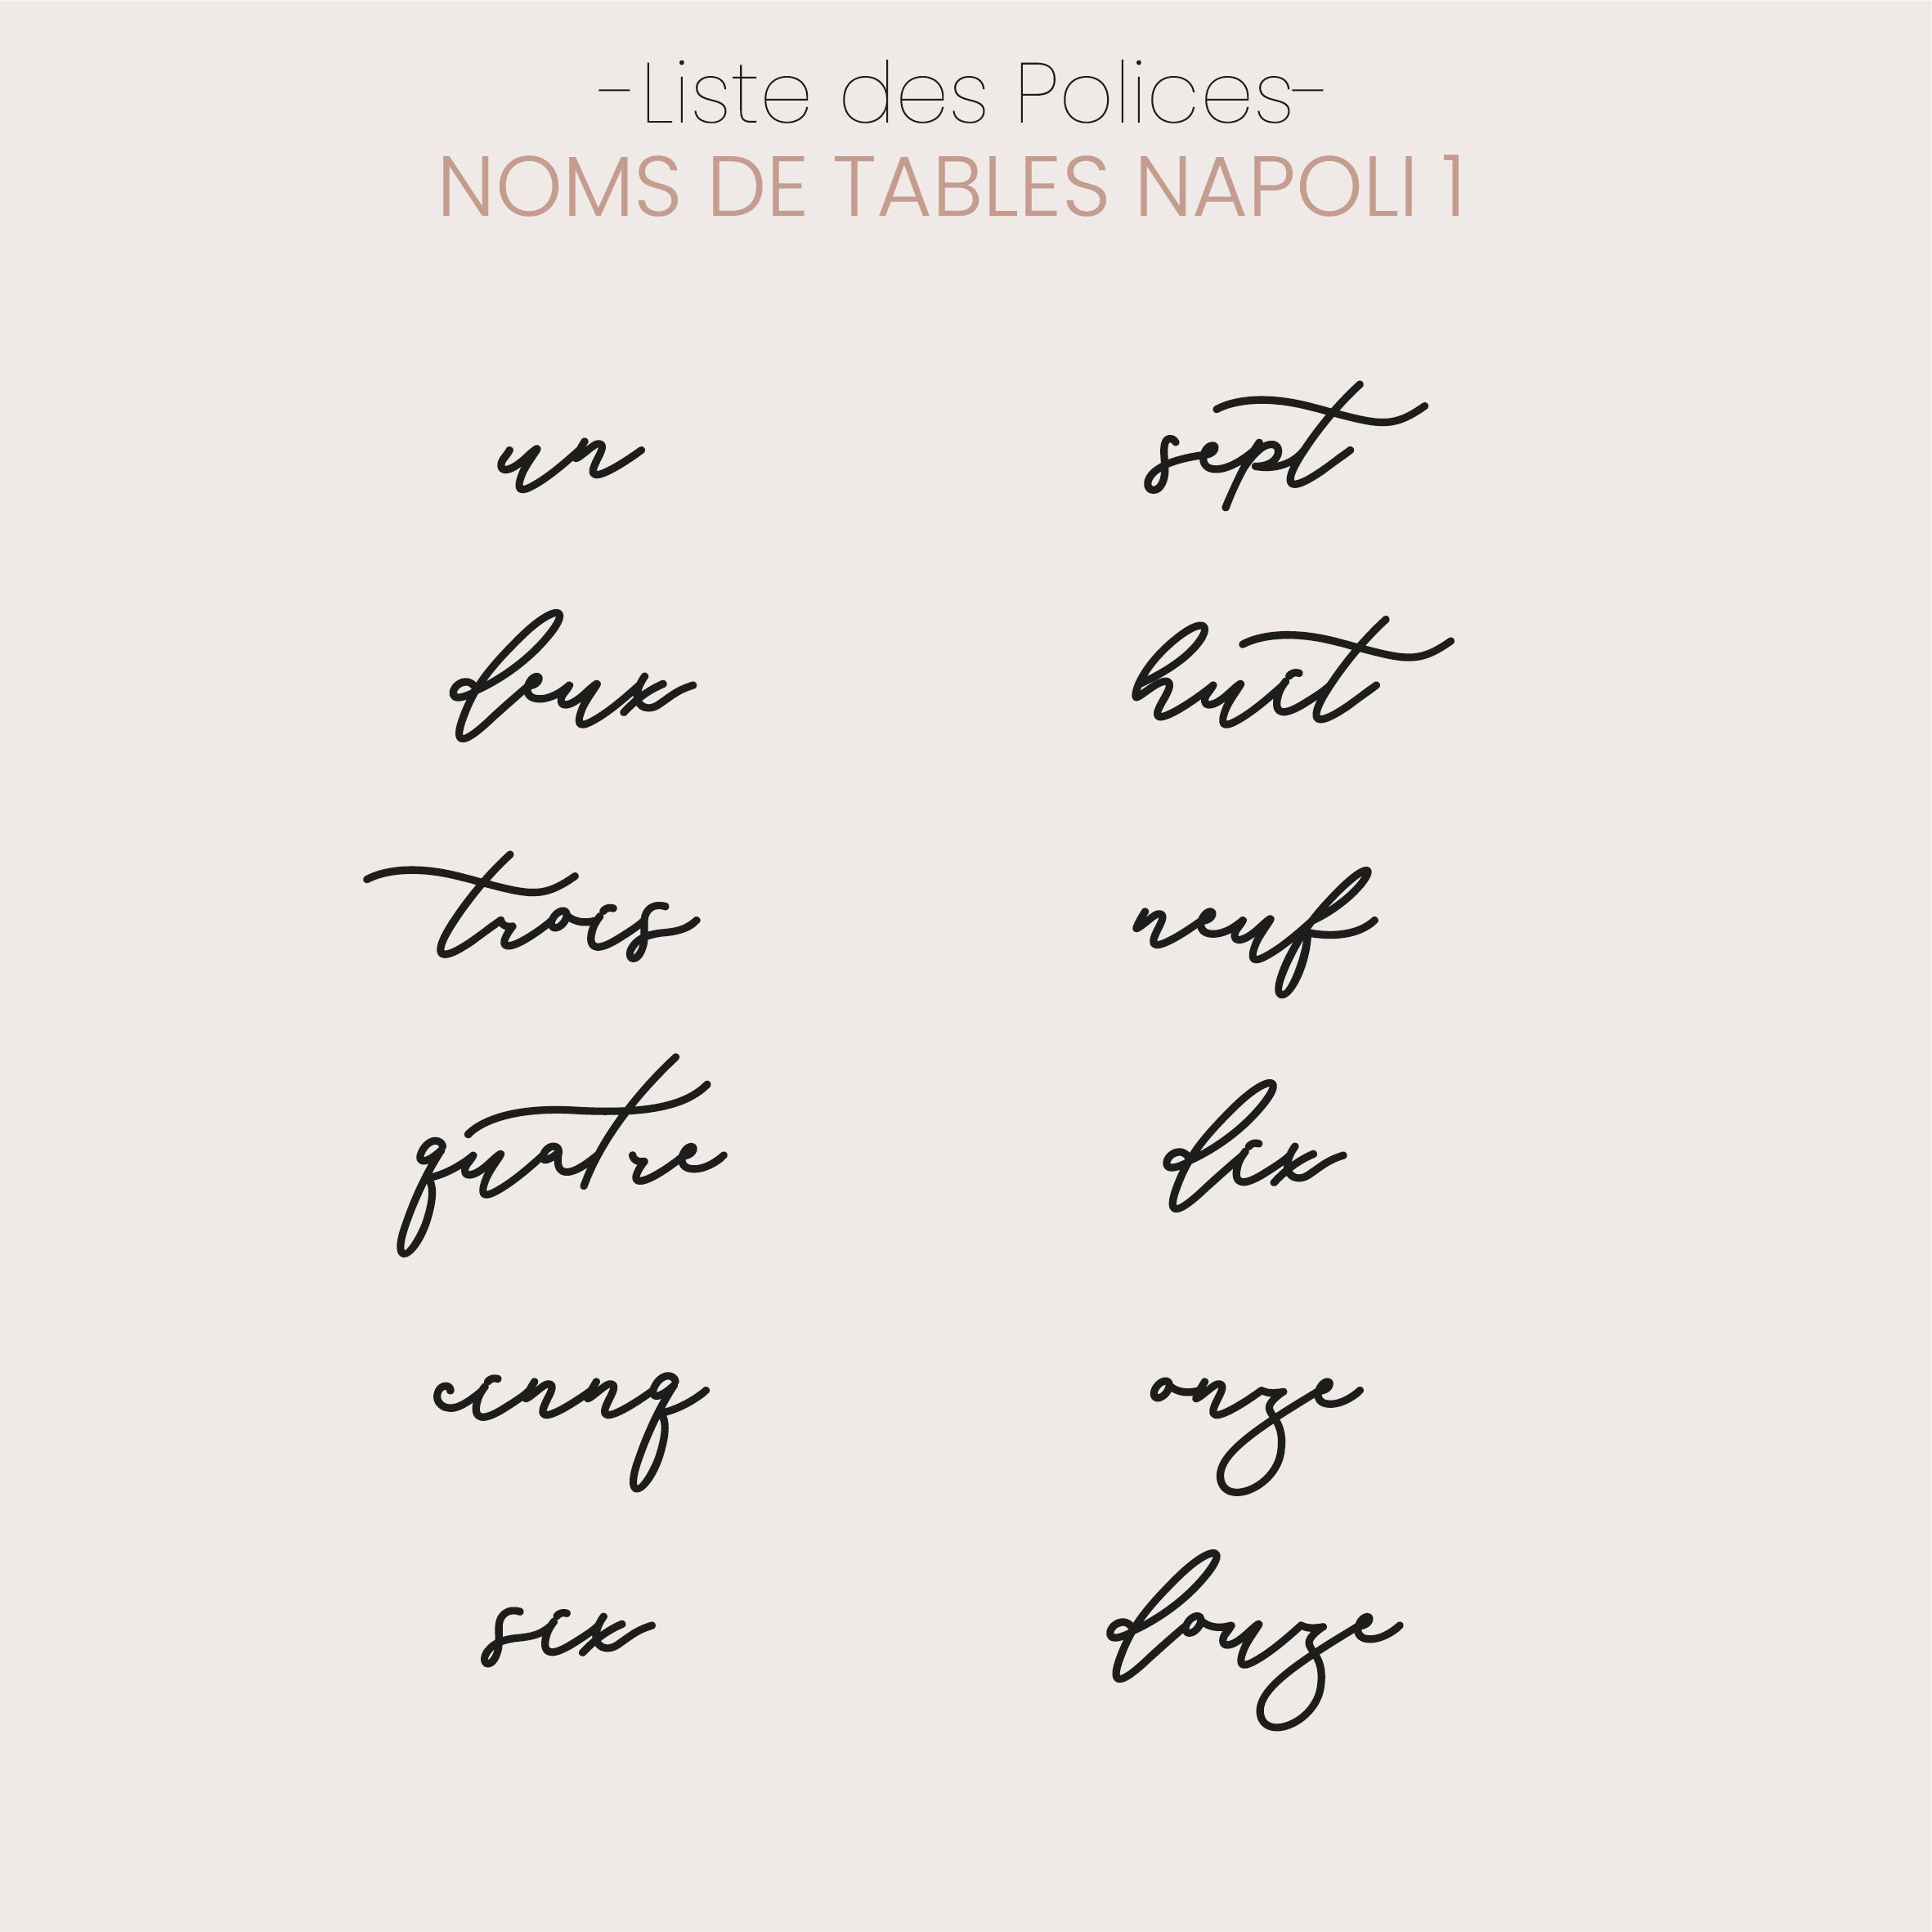 -Liste des Polices-
NOMS DE TABLES NAPOLI 1
un
deux
trois
quatre
cinnq
six
sept
huit
neuf
dix
onze
douze